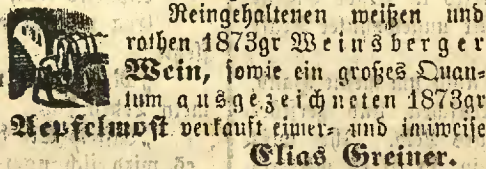 Reingehaltenen weißen und
rothen 1873gr Weinsberger
Wein, sowie ein großes Quan-
tum ausgezeichneten 1873gr
Aepfelmost verkauft eimer- und imiweise
Elias Greiner.